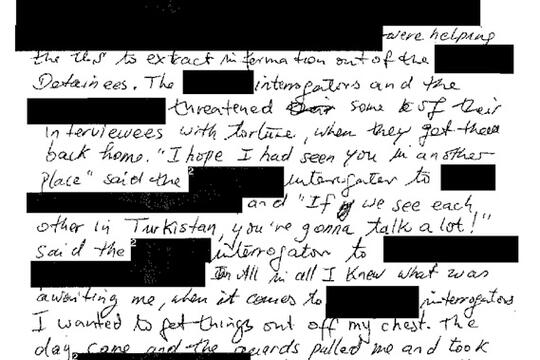 were helping
the U.S to extract information out of the
Detainees. The interrogators and the
threatened some of their
interviewees with torture, when they get there
back home. "I hope I had seen you in another
place" said the 2 interrogator to
and "If we see each
other in Turkistan, you're gonna talk a lot!"
said the 2 interrogator to
All in all I knew what was
awaiting me, when it comes to interrogators
I wanted to get things out off my chest. The
day came and the guards pulled me and took